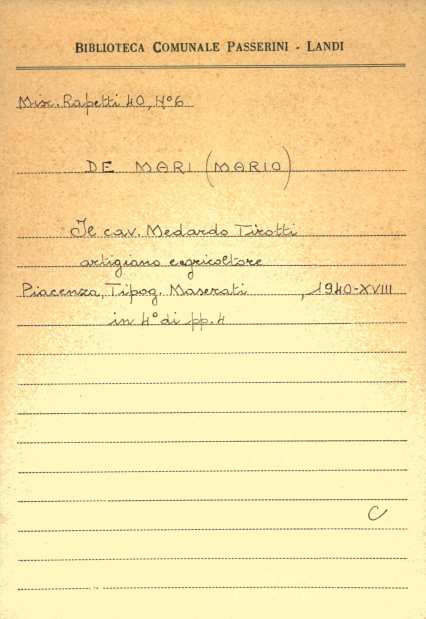 BIBLIOTECA COMUNALE PASSERINI - LANDI
Misc. Rapetti 40, N° 6
DE MARI (MARIO)
Il cav. Medardo Tirotti
artigiano e agricoltore
Piacenza, Tipog. Maserati , 1940-XVIII
in 4° di pp. 4
C